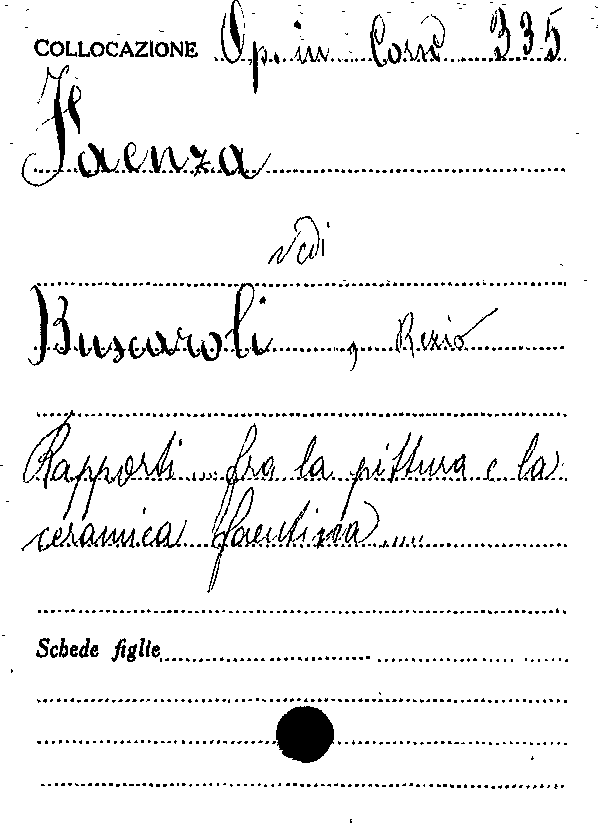 COLLOCAZIONE Op. in Corso 335
Faenza
vedi
Buscaroli, Rezio
Rapporti... fra la pittura e la
ceramica faentina.....
Schede figlie